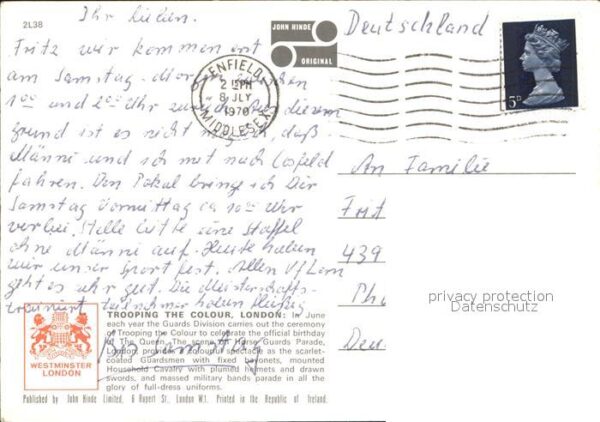 2L38
Ihr Lieben.
Fritz wir kommen erst
am Samstag-Morgen zwischen
1⁰⁰ und 2⁰⁰ Uhr zurück. Aus diesem
grund ist es nicht möglich, daß
Männi und ich mit nach Cosfeld
fahren. Den Pokal bringe ich Dir
Samstag Vormittag ca 10⁰⁰ Uhr
vorbei. Stelle bitte eine Staffel
ohne Männi auf. Heute haben
wir unser Sportfest. Allen VfLern
geht es ihr gut. Die Meisterschafts-
teilnehmer haben fleißig
trainiert
Bis Samstag
JOHN HINDE
ORIGINAL
Deutschland
ENFIELD
2 15PM
8 JLY
1970
MIDDLESEX
5D
An Familie
Frit
439
Pho
Deu
privacy protection
Datenschutz
WESTMINSTER
LONDON
TROOPING THE COLOUR, LONDON: In June
each year the Guards Division carries out the ceremony
of Trooping the Colour to celebrate the official birthday
of The Queen. The scene at Horse Guards Parade,
London, provides a colourful spectacle as the scarlet-
coated Guardsmen with fixed bayonets, mounted
Household Cavalry with plumed helmets and drawn
swords, and massed military bands parade in all the
glory of full-dress uniforms.
Published by John Hinde Limited, 6 Rupert St., London W.1. Printed in the Republic of Ireland.